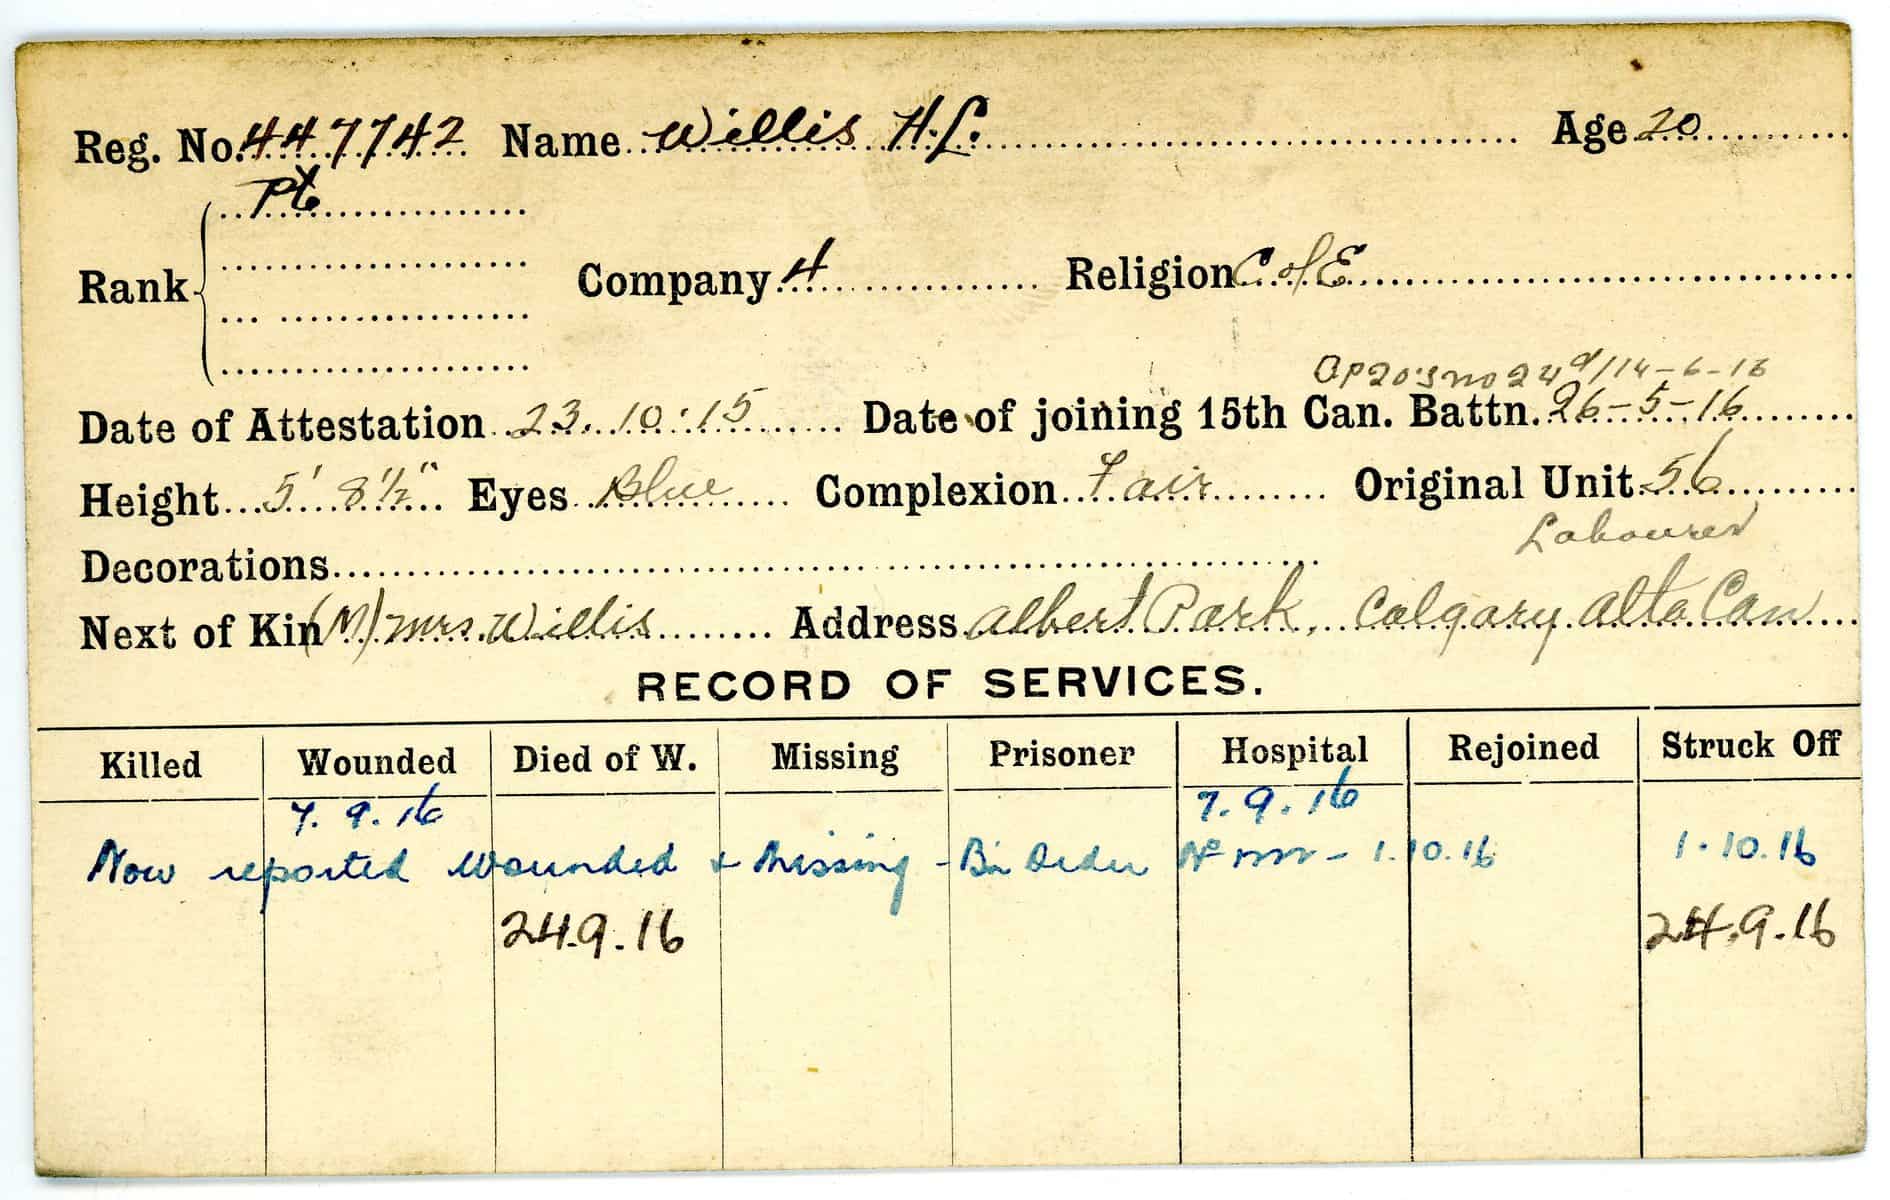 Reg. No. 447742 Name Willis H. L. Age 20
Pte
Rank
Company 4 Religion C of E
14-6-16
Date of Attestation 23.10.15 Date of joining 15th Can. Battn. 26-5-16
Height 5' 8½" Eyes Blue Complexion Fair Original Unit 56
Labourer
Decorations
Next of Kin (M) Mrs. Willis Address Albert Park, Calgary Alta Can
RECORD OF SERVICES.
Killed Wounded Died of W. Missing Prisoner Hospital Rejoined Struck Off
7.9.16 7.9.16
Now reported wounded & Missing - Bn Order No - 1.10.16 1.10.16
24.9.16 24.9.16